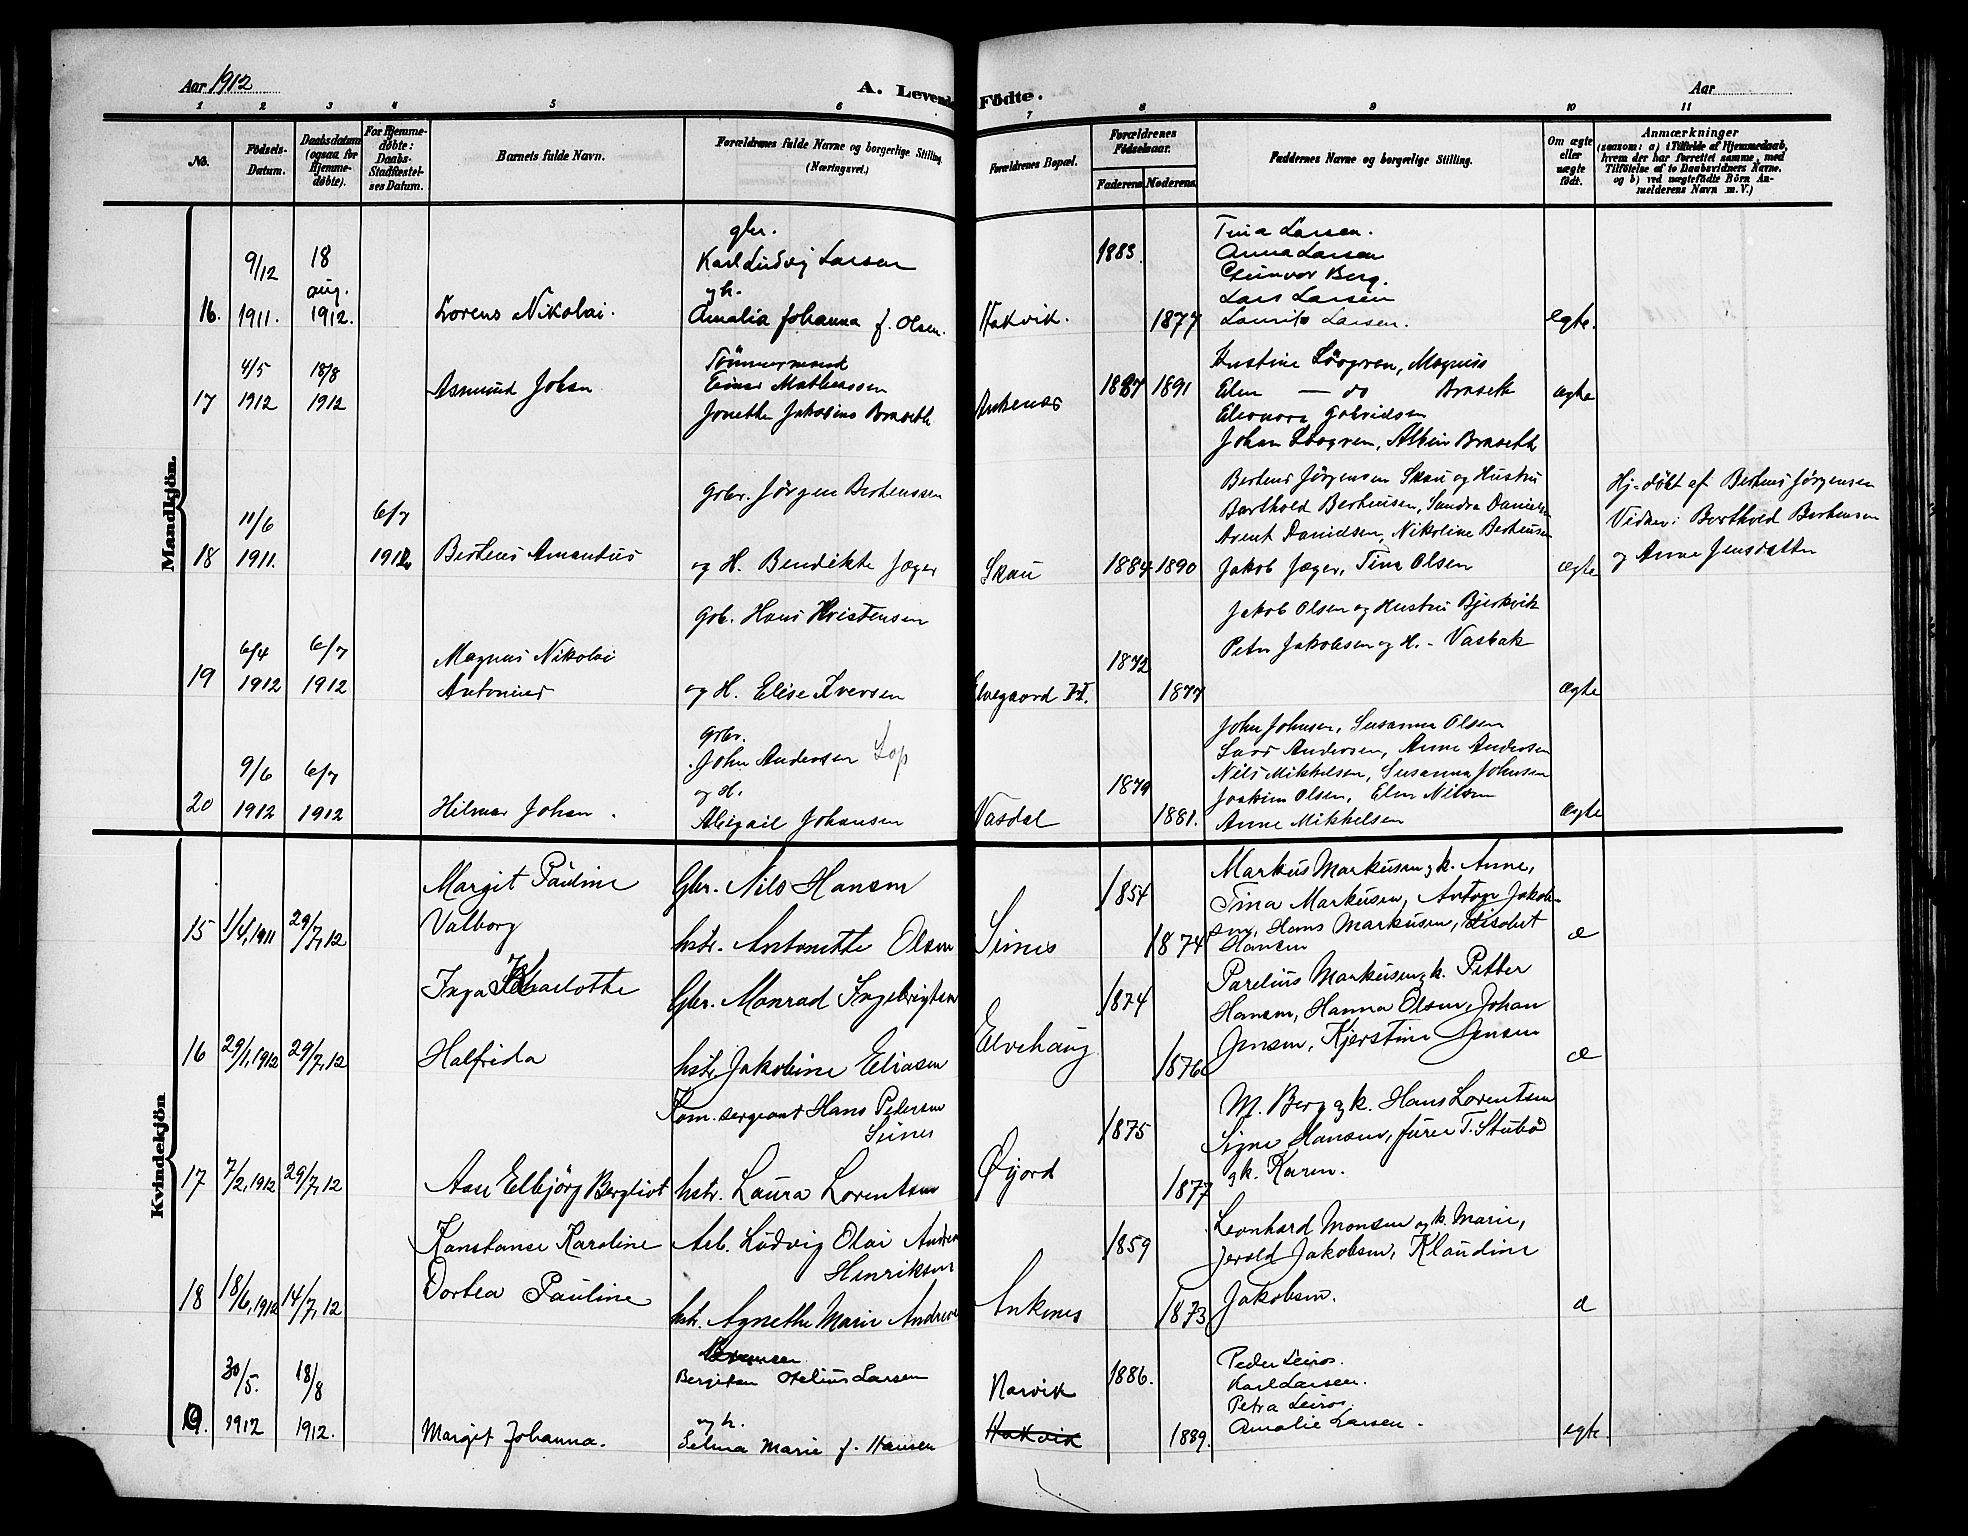 Aar 1912
A. Levende Födte.
Aar
1 2 3 4 5 6 7 8 9 10 11
No.
Födsels-
Datum.
Daabsdatum
(ogsaa for
Hjemme-
döbte).
For Hjemme-
döbte:
Daabs-
Stadfæstel-
ses Datum.
Barnets fulde Navn.
Forældrenes fulde Navne og borgerlige Stilling.
(Næringsvei.)
Forældrenes Bopæl.
Forældrenes
Födselsaar.
Faderens.
Moderens.
Faddernes Navne og borgerlige Stilling.
Om ægte
eller
uægte
födt.
Anmærkninger
(saasom: a) i Tilfælde af Hjemmedaab,
hvem der har forrettet samme, med
Tilföielse af to Daabsvidners Navne,
og b) ved uægtefödte Börn An-
melderens Navn m. V.)
Mandkjön.
16.
9/12
1911.
18
aug.
1912.
Lorens Nikolai.
gbr.
Karl Ludvig Larsen
og h.
Amalia Johanna f. Olsen.
Hakvik.
1883.
1877
Tina Larsen.
Anna Larsen
Gunvor Berg.
Lars Larsen
Laurits Larsen.
egte.
17
4/5
1912
18/8
1912
Asmund Johan
Tömmermand
Einar Mathiassen
Jonette Jakobine Braseth
Ankenes
1887
1891
Kristine Lövgren, Magnus
Elen — do Braseth
Eleonora
Johan Lövgren, Albin Braseth
ægte
18
11/6
1911.
6/7
1912
Bertens Amandus
Grbr. Jørgen Bertenssen
og H. Bendikte Jæger
Skau
1884
1890
Bertens Jørgensen Skau og Hustru
Barthold Berthensen, Sandra Danielsen
Arent Davidsen, Nikoline Berthensen
Jakob Jæger, Tina Olsen
ægte
Hj-døbt af Bertens Jørgensen
Vidner: Berthold Berthensen
og Anne Jensdatter
19
6/4
1912
6/7
1912
Magnus Nikolai
Antonius
Grb. Hans Kristensen
og H. Elise Iversen
Elvegaard II.
1872
1877
Jakob Olsen og Hustru Bjerkvik
Peter Jakobsen og H. - Vasbak
ægte
20
9/6
1912
6/7
1912
Hilmar Johan.
Grbr.
John Andersen Lap
og H.
Abigail Johansen
Vasdal
1879
1881.
John Johnsen, Susanna Olsen
Lars Andersen, Anne Andersen
Nils Mikkelsen, Susanna Johnsen
Joakim Olsen, Elen Nilsen
Anne Mikkelsen
Ægte
Kvindekjön
15
1/4, 1911
29/7, 12
Margit Pauline
Valborg
Gbr. Nils Hansen
hstr. Antonette Olsen
Seines
1854
1874
Markus Markusen, g.k. Anne,
Tina Markusen, Anton Jakob-
sen, Hans Markusen, Elisabet
Hansen
æ
16
29/1, 1912
29/7, 12
Inga Kharlotte
Halfrida
Gbr. Monrad Ingebrigtsen
hstr. Jakobine Eliasen
Elvehaug
1874
1876
Parelius Markusen, g.k. Petter
Hansen, Hanna Olsen, Johan
Jensen, Kjerstine Jensen
æ
17
7/2, 1912
29/7, 12
Aase Elbjörg Bergliot
Kom. sergeant Hans Pedersen
Seines
hstr. Laura Lorentsen
Øyjord
1875
1877
M. Berg g.k. Hans Lorentsen
Signe Hansen, furer T. Stubø
g.k. Karen.
18
18/6, 1912
14/7, 12
Konstanse Karoline
Dortea Pauline
Arb. Ludvig Olai Andreas
Henriksen
hstr. Agnethe Marie Andreasen
Ankenes
1859
1873
Leonhard Monsen og k. Marie,
Jerold Jakobsen, Klaudine
Jakobsen.
æ
19.
30/5.
1912
18/8
1912.
Margit Johanna.
Bremsen
Bergeten Otelius Larsen
og h.
Selma Marie f. Hansen
Narvik
Hakvik
1886.
1889.
Peder Leiros.
Karl Larsen.
Petra Leiros.
Amalie Larsen.
egte.